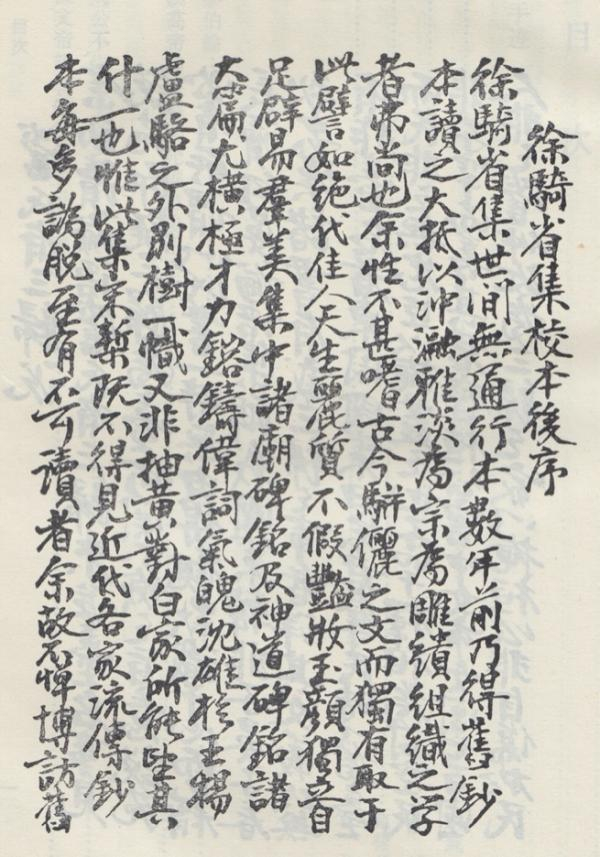 徐騎省集校本後序
徐騎省集世間無通行本數年前乃得舊鈔
本讀之大抵以沖瀜雅淡為宗為雕繢組織之学
者弗尚也余性不甚嗜古今駢儷之文而獨有取于
此譬如絕代佳人天生麗質不假豔妝玉顏獨立自
足辟易羣美集中諸廟碑銘及神道碑銘諸
大篇尤橫極才力鎔鑄偉詞氣魄沈雄於王楊
盧駱之外別樹一幟又非抽黃對白家所能望其
什一也惟此集宋槧既不得見近代各家流傳鈔
本每多譌脫至有不可讀者余故不憚博訪舊